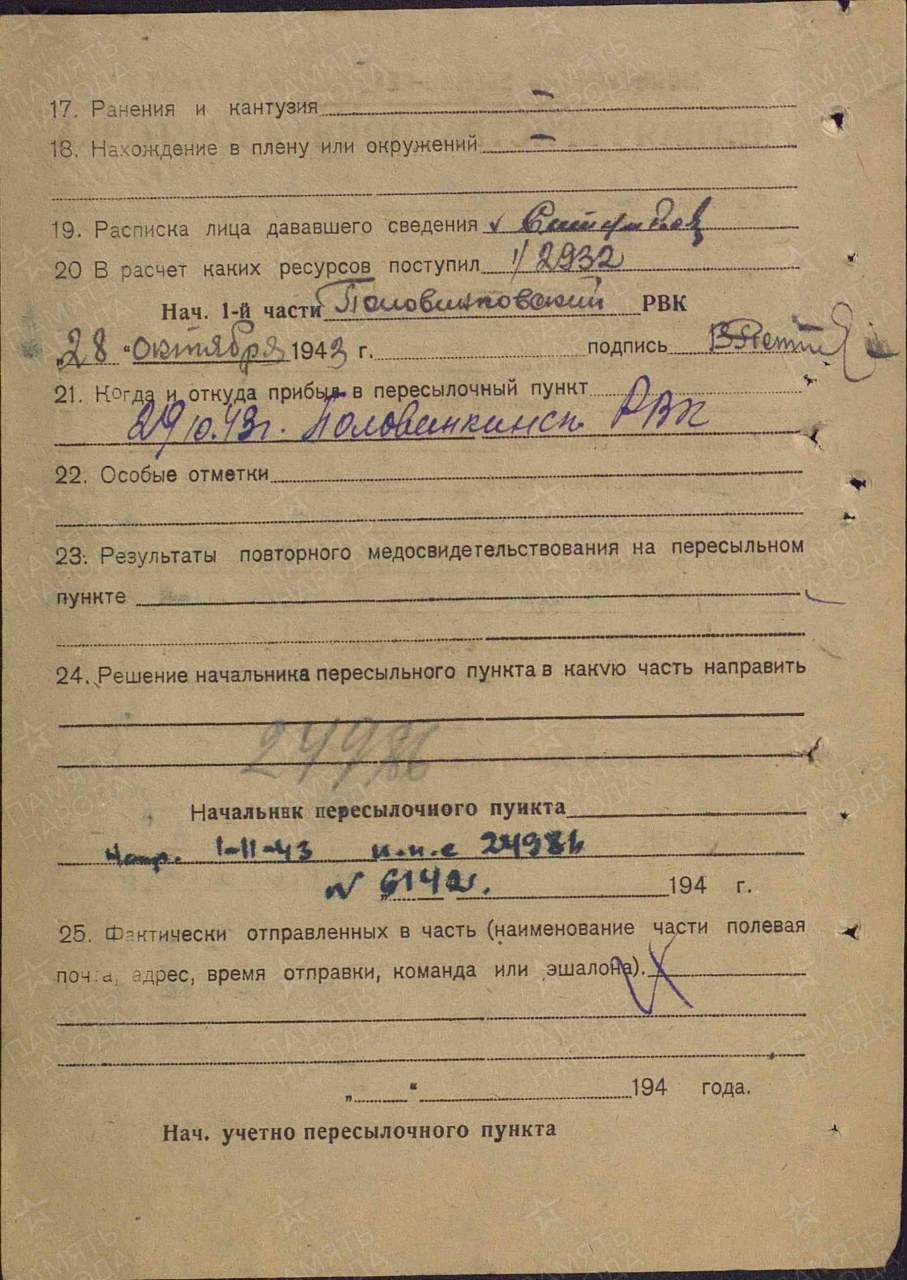 17. Ранения и кантузия —
18. Нахождение в плену или окружений —
19. Расписка лица дававшего сведения
20 В расчет каких ресурсов поступил 1/2932
Нач. 1-й части Половинковский РВК
„28 “ октября 1943 г. подпись
21. Когда и откуда прибыл в пересылочный пункт
29/10.43г. Половинкинск РВК
22. Особые отметки
23. Результаты повторного медосвидетельствования на пересыльном
пункте
24. Решение начальника пересыльного пункта в какую часть направить
24986
Начальник пересылочного пункта
Напр. 1-11-43 п.п.с 24986
N 6142. 194 г.
25. Фактически отправленных в часть (наименование части полевая
почта, адрес, время отправки, команда или эшалона).
„ “ 194 года.
Нач. учетно пересылочного пункта
ПАМЯТЬ НАРОДА